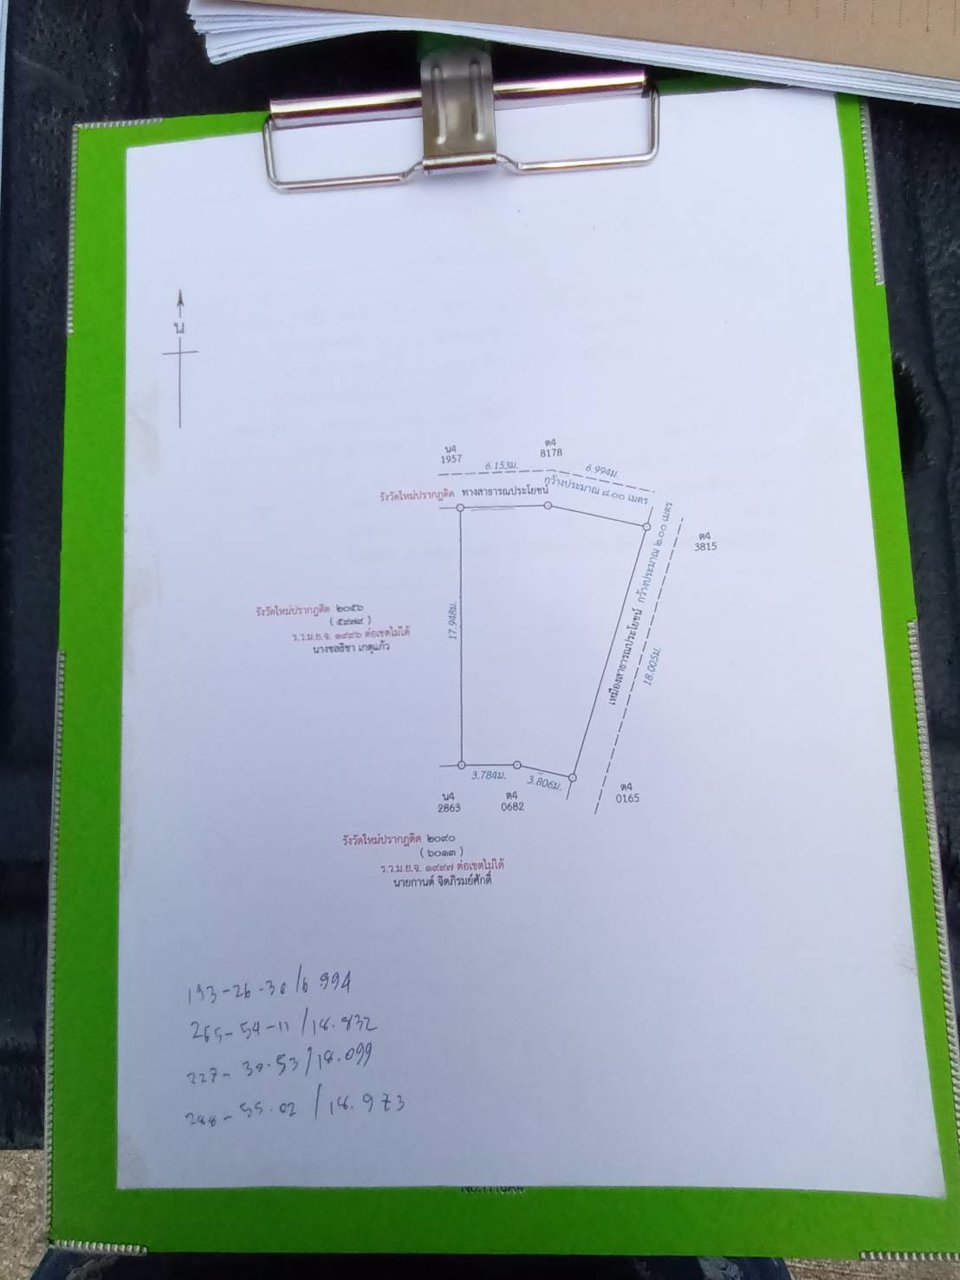 น
น4
1957
ต4
8178
6.153ม.
6.994ม.
รังวัดใหม่ปรากฏติด ทางสาธารณประโยชน์ กว้างประมาณ ๘.๐๐ เมตร
ต4
3815
เหมืองสาธารณประโยชน์ กว้างประมาณ ๒.๐๐ เมตร
18.005ม.
17.948ม.
รังวัดใหม่ปรากฏติด ๒๐๕๖
( ๕๙๗๙ )
ร.ว.ม.ย.จ. ๑๙๙๖ ต่อเขตไม่ได้
นางชลธิชา เกตุแก้ว
3.784ม.
3.806ม.
น4
2863
ต4
0682
ต4
0165
รังวัดใหม่ปรากฏติด ๒๐๙๐
( ๖๐๑๓ )
ร.ว.ม.ย.จ. ๑๙๙๗ ต่อเขตไม่ได้
นายกานต์ จิตภิรมย์ศักดิ์
193-26-30/6 994
265-54-11/18.832
227-30-53/18.099
288-55-02/18.973